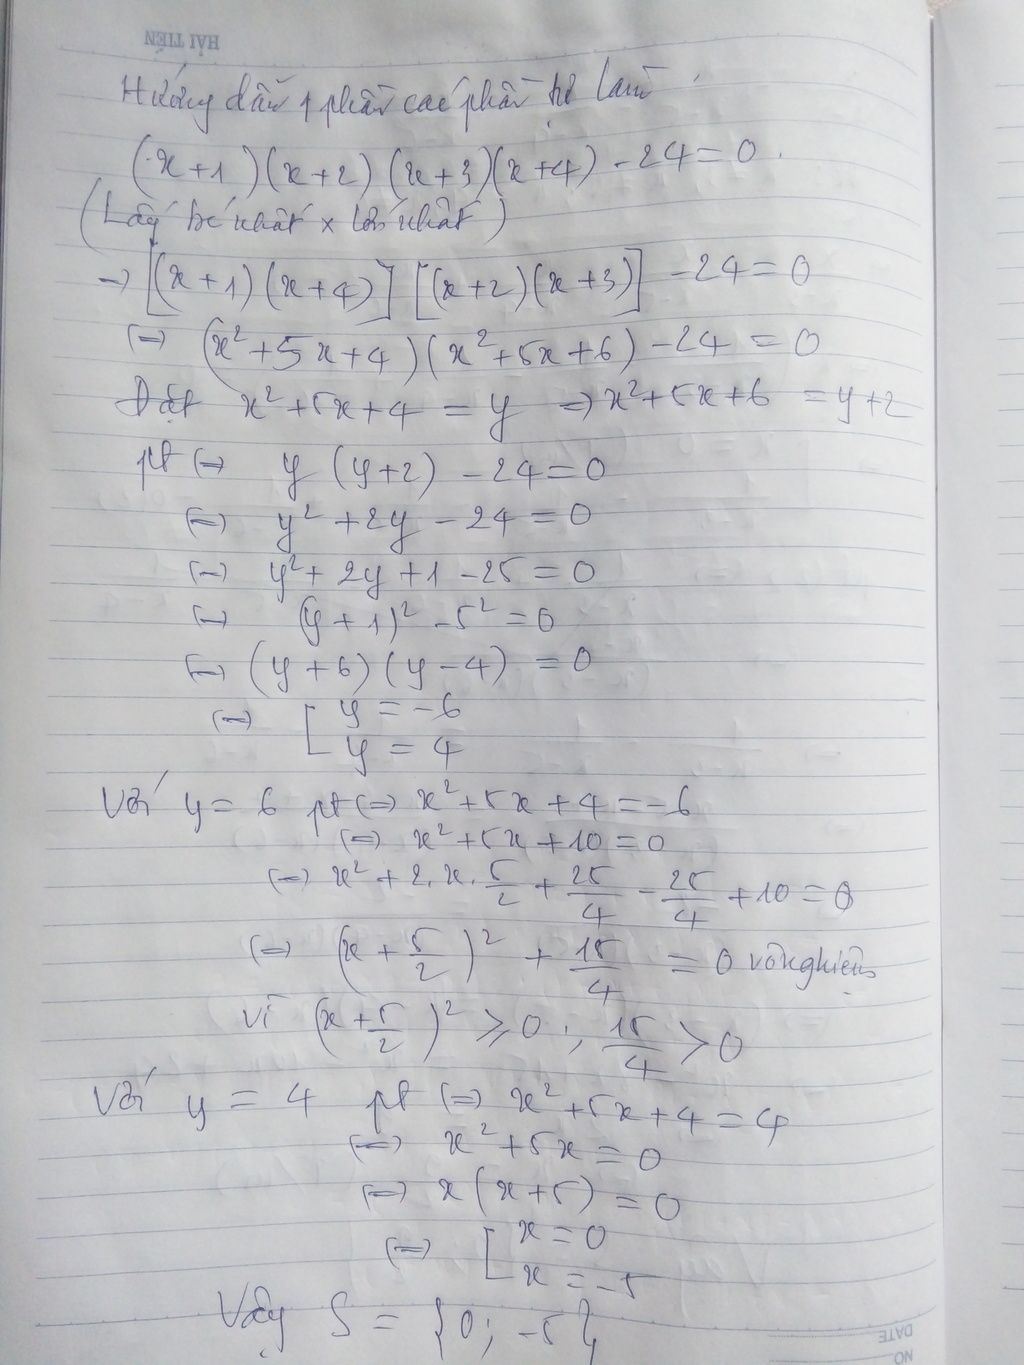 HẢI TIẾN
Hướng dẫn 1 phần các phần tự làm
(x+1)(x+2)(x+3)(x+4) - 24 = 0
(Lấy bé nhất x lớn nhất)
→ [(x+1)(x+4)] [(x+2)(x+3)] - 24 = 0
(=) (x²+5x+4)(x²+5x+6) - 24 = 0
Đặt x²+5x+4 = y => x²+5x+6 = y+2
pt (=) y(y+2) - 24 = 0
(=) y² + 2y - 24 = 0
(=) y² + 2y + 1 - 25 = 0
(=) (y+1)² - 5² = 0
(=) (y+6)(y-4) = 0
(=) [ y = -6
y = 4
Với y = 6 pt (=) x²+5x+4 = -6
(=) x²+5x+10 = 0
(=) x² + 2.x.5/2 + 25/4 - 25/4 + 10 = 0
(=) (x + 5/2)² + 15/4 = 0 vô nghiệm
Vì (x+5/2)² ⩾ 0 ; 15/4 > 0
Với y = 4 pt (=) x²+5x+4 = 4
(=) x²+5x = 0
(=) x(x+5) = 0
(=) [ x = 0
x = -5
Vậy S = {0; -5}
DATE
NO